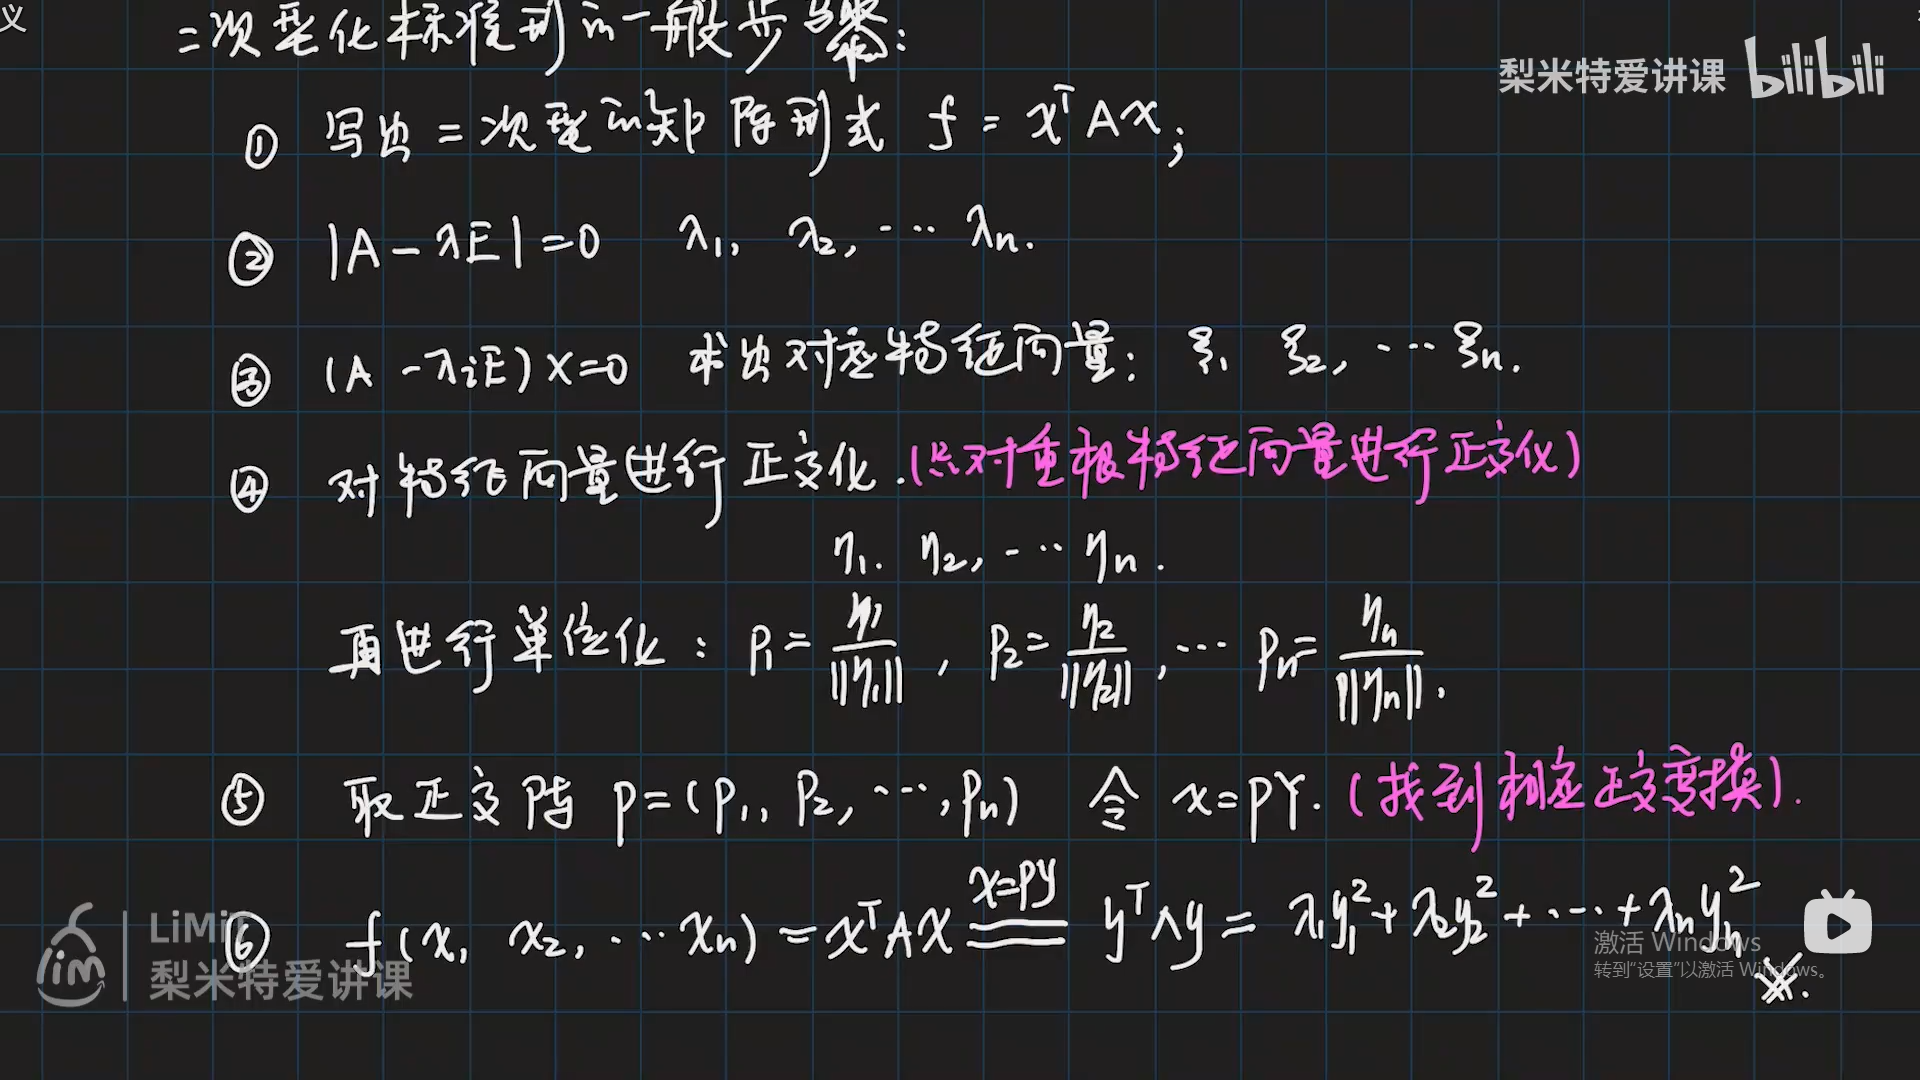 义
二次型化标准型的一般步骤:
梨米特爱讲课 bilibili
① 写出二次型的矩阵形式 f = xᵀAx;
② |A-λE|=0 λ₁, λ₂, … λn.
③ (A-λiE)x=0 求出对应特征向量: ξ₁ ξ₂, … ξn.
④ 对特征向量进行正交化.(只对重根特征向量进行正交化)
η₁. η₂, … ηn.
再进行单位化: P₁= η₁/||η₁||, P₂= η₂/||η₂||, … Pn= ηn/||ηn||.
⑤ 取正交阵 P=(P₁, P₂, …, Pn) 令 x=PY. (找到相应正交变换).
⑥ f(x₁ x₂, … xn) = xᵀAx x=Py yᵀΛy = λ₁y₁²+λ₂y₂²+…+λnyn²
LiMiT
梨米特爱讲课
激活 Windows
转到"设置"以激活 Windows。